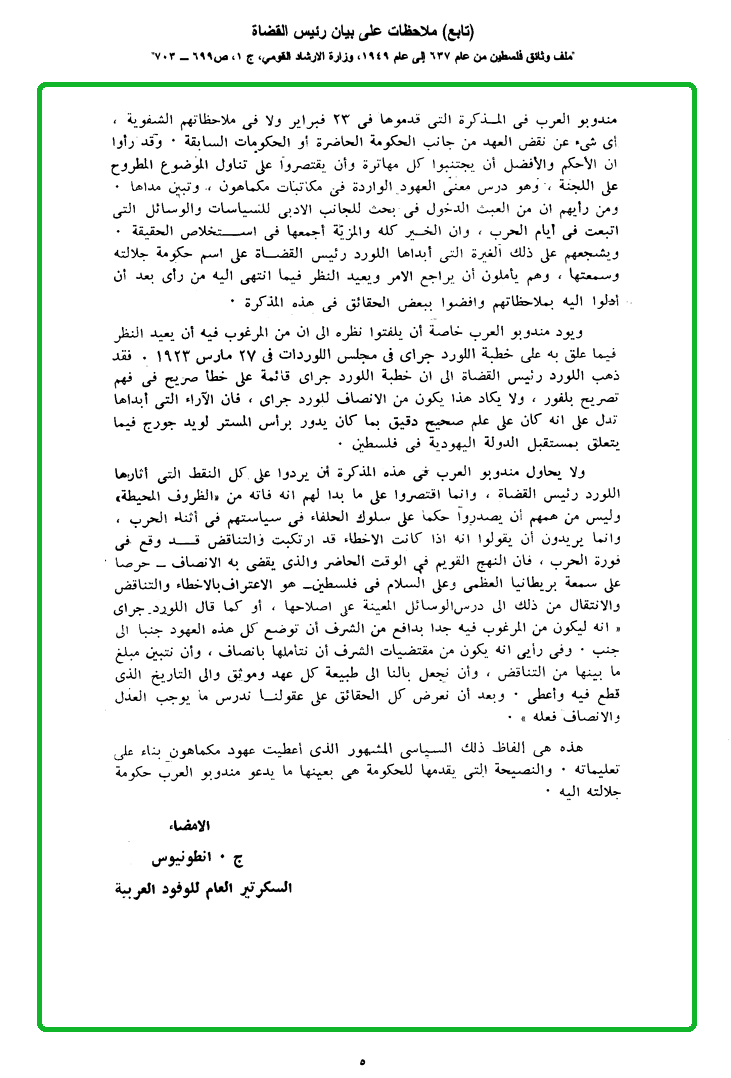 (تابع) ملاحظات على بيان رئيس القضاة
"ملف وثائق فلسطين من عام ٦٣٧ إلى عام ١٩٤٩، وزارة الارشاد القومي، ج ١، ص ٦٩٩ ــ ٧٠٣"
مندوبو العرب فى المـذكرة التى قدموها فى ٢٣ فبراير ولا فى ملاحظاتهم الشفوية ،
أى شىء عن نقض العهد من جانب الحكومة الحاضرة أو الحكومات السابقة ٠ وقد رأوا
ان الأحكم والأفضل أن يجتنبوا كل مهاترة وأن يقتصروا على تناول الموضوع المطروح
على اللجنة ، وهو درس معنى العهود الواردة فى مكاتبات مكماهون ، وتبين مداها ٠
ومن رأيهم ان من العبث الدخول فى بحث للجانب الادبى للسياسات والوسائل التى
اتبعت فى أيام الحرب ، وان الخير كله والمزية أجمعها فى اســتخلاص الحقيقة ٠
ويشجعهم على ذلك الغيرة التى أبداها اللورد رئيس القضــاة على اسم حكومة جلالته
وسمعتها ، وهم يأملون أن يراجع الامر ويعيد النظر فيما انتهى اليه من رأى بعد أن
أدلوا اليه بملاحظاتهم وافضوا ببعض الحقائق فى هذه المذكرة ٠
ويود مندوبو العرب خاصة أن يلفتوا نظره الى ان من المرغوب فيه أن يعيد النظر
فيما علق به على خطبة اللورد جراى فى مجلس اللوردات فى ٢٧ مارس ١٩٢٣ ٠ فقد
ذهب اللورد رئيس القضاة الى ان خطبة اللورد جراى قائمة على خطأ صريح فى فهم
تصريح بلفور ، ولا يكاد هذا يكون من الانصاف للورد جراى ، فان الآراء التى أبداها
تدل على انه كان على علم صحيح دقيق بما كان يدور برأس المستر لويد جورج فيما
يتعلق بمستقبل الدولة اليهودية فى فلسطين ٠
ولا يحاول مندوبو العرب فى هذه المذكرة أن يردوا على كل النقط التى أثارها
اللورد رئيس القضاة ، وانما اقتصروا على ما بدا لهم انه فاته من «الظروف المحيطة»
وليس من همهم أن يصدروا حكما على سلوك الحلفاء فى سياستهم فى أثناء الحرب ،
وانما يريدون أن يقولوا انه اذا كانت الاخطاء قد ارتكبت والتناقض قــد وقع فى
فورة الحرب ، فان النهج القويم فى الوقت الحاضر والذى يقضى به الانصاف ــ حرصا
على سمعة بريطانيا العظمى وعلى السلام فى فلسطين ــ هو الاعتراف بالاخطاء والتناقض
والانتقال من ذلك الى درس الوسائل المعينة على اصلاحها ، أو كما قال اللورد جراى
« انه ليكون من المرغوب فيه جدا بدافع من الشرف أن توضع كل هذه العهود جنبا الى
جنب ٠ وفى رأيى انه يكون من مقتضيات الشرف أن نتأملها بانصاف ، وأن نتبين مبلغ
ما بينها من التناقض ، وأن نجعل بالنا الى طبيعة كل عهد وموثق والى التاريخ الذى
قطع فيه وأعطى ٠ وبعد أن نعرض كل الحقائق على عقولنــا ندرس ما يوجب العدل
والانصاف فعله » ٠
هذه هى ألفاظ ذلك السياسى المشهور الذى أعطيت عهود مكماهون بناء على
تعليماته ٠ والنصيحة التى يقدمها للحكومة هى بعينها ما يدعو مندوبو العرب حكومة
جلالته اليه ٠
الامضاء
ج ٠ انطونيوس
السكرتير العام للوفود العربية
٥